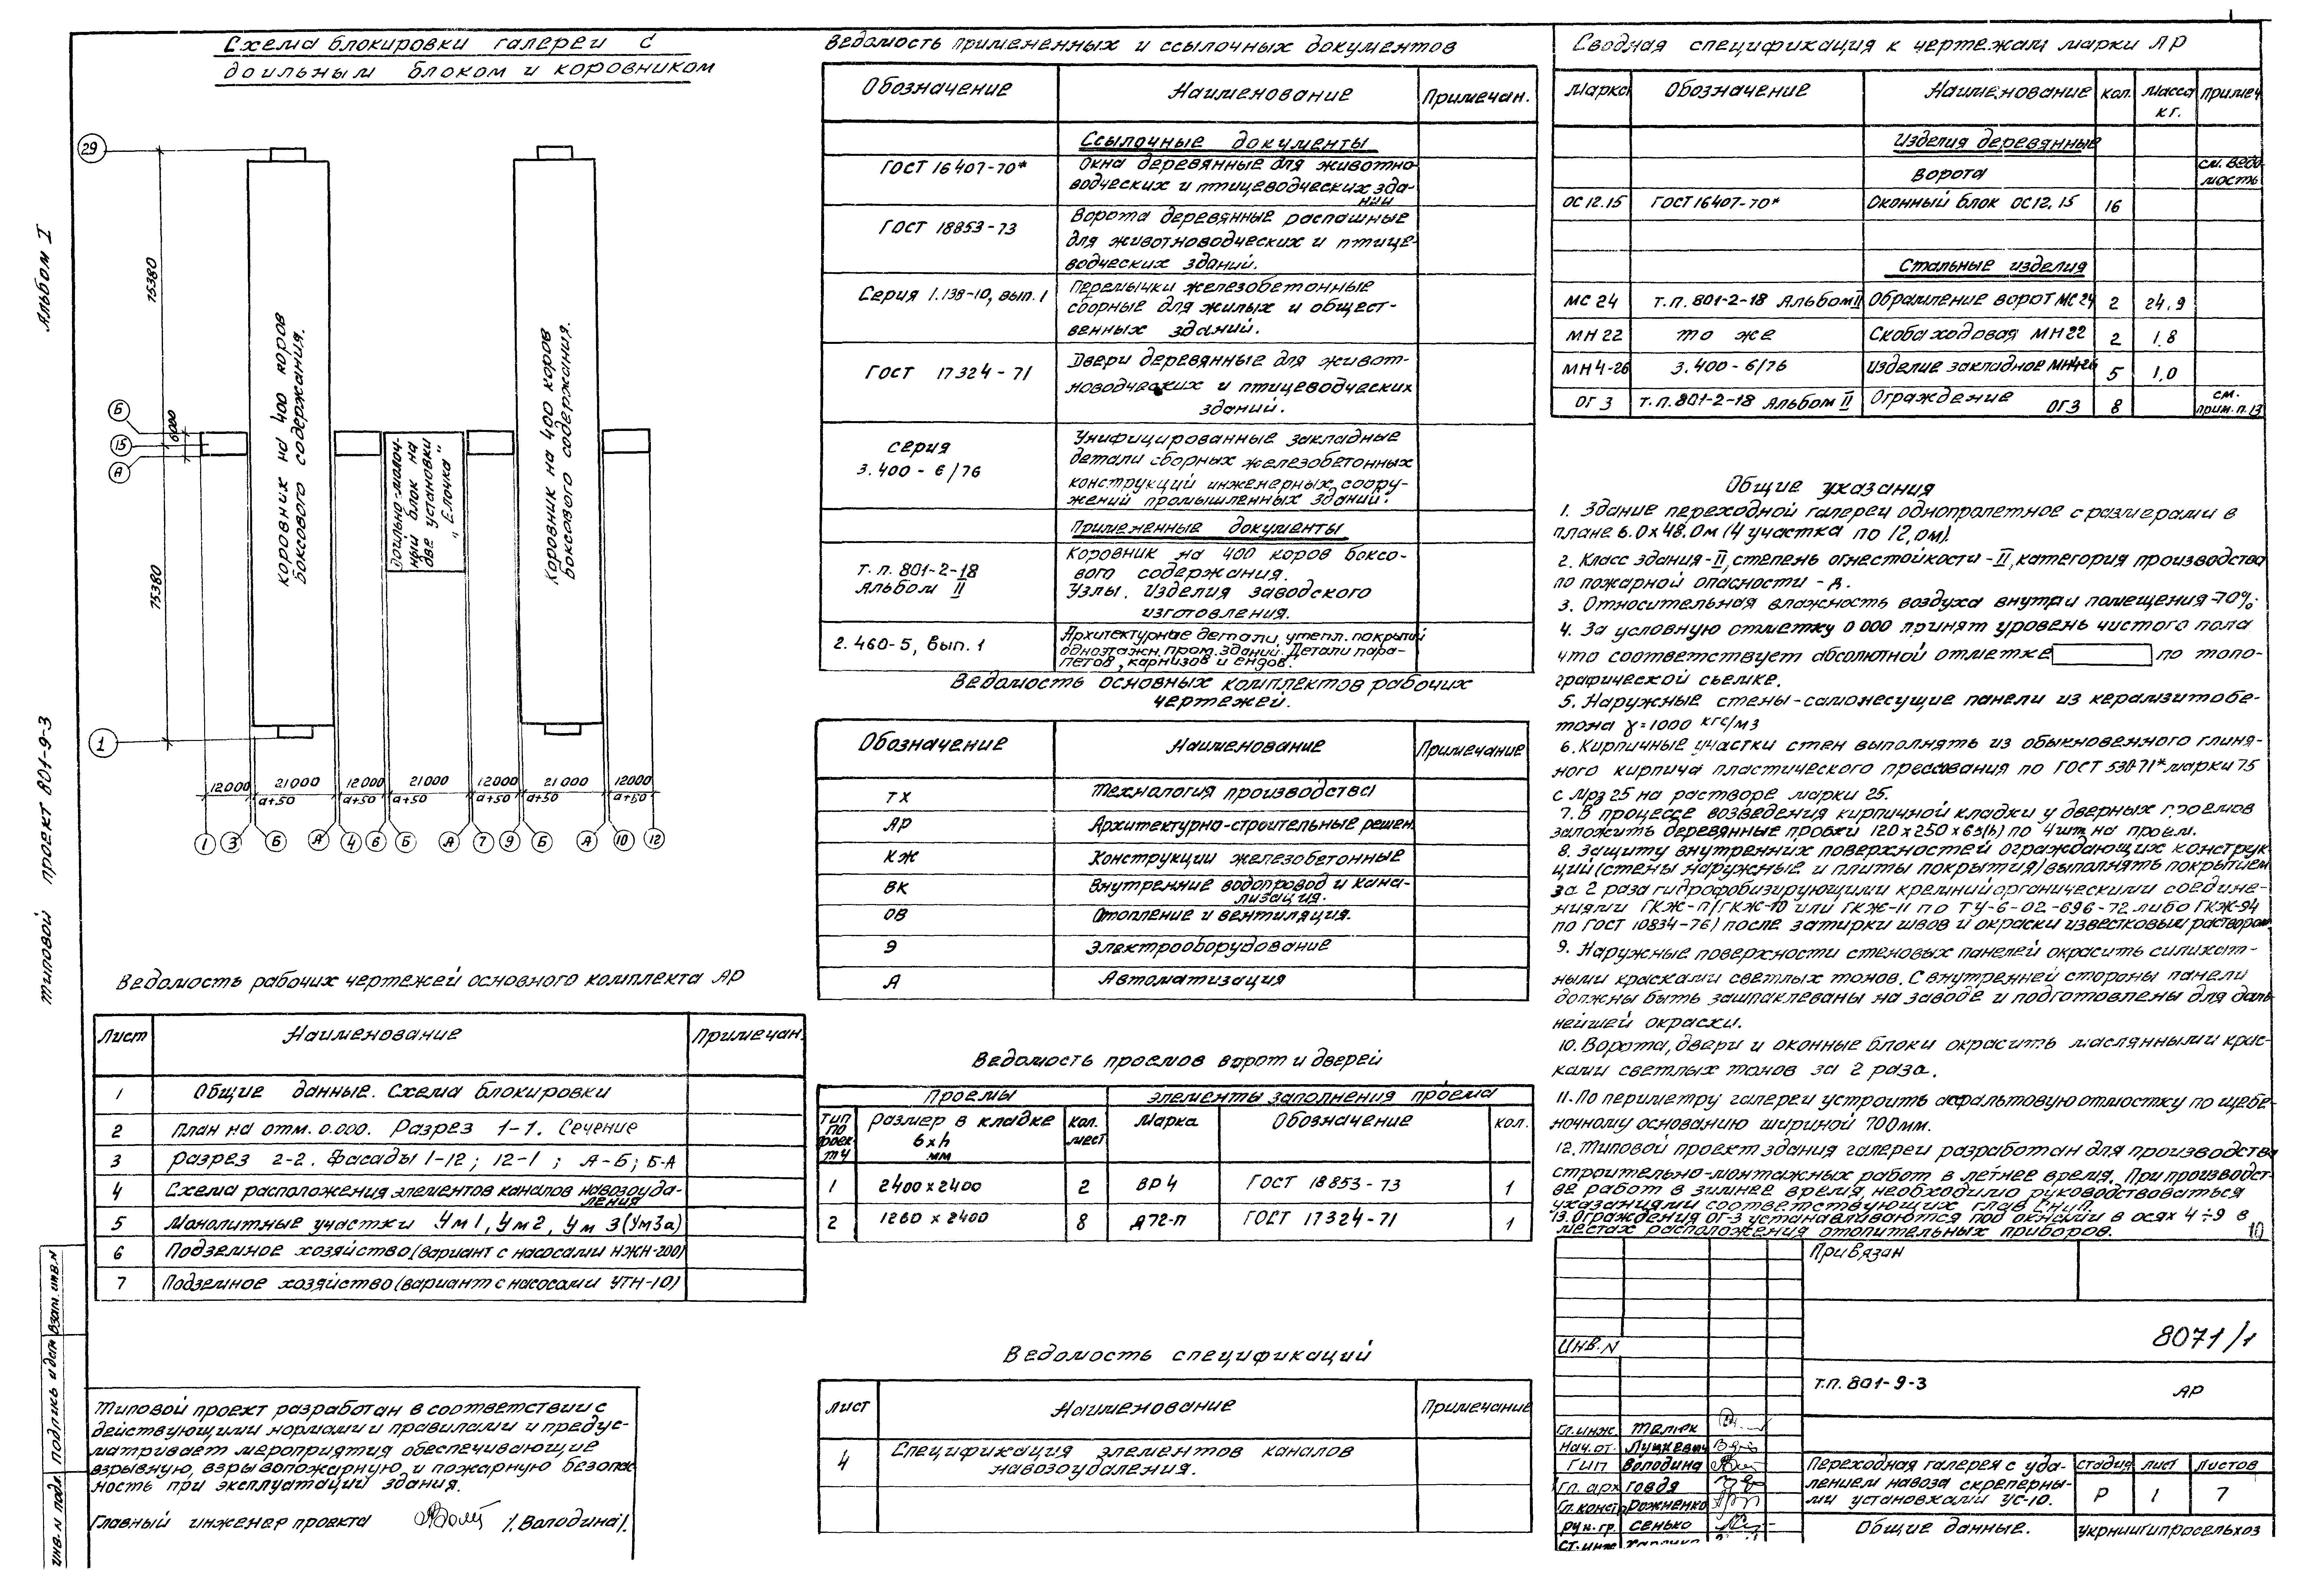 Альбом I
типовой проект 801-9-3
Схема блокировки галереи с
доильным блоком и коровником
29
75380
Б
15
А
6000
75380
1
Коровник на 400 коров
боксового содержания.
Доильно-молоч-
ный блок на
две установки
"Елочка"
Коровник на 400 коров
боксового содержания.
12000 21000 12000 21000 12000 21000 12000
а+50 а+50 а+50 а+50 а+50 а+50
1 3 Б А 4 6 Б А 7 9 Б А 10 12
Ведомость рабочих чертежей основного комплекта АР
Лист Наименование Примечан.
1 Общие данные. Схема блокировки
2 План на отм. 0.000. Разрез 1-1. Сечение
3 Разрез 2-2. Фасады 1-12; 12-1; А-Б; Б-А
4 Схема расположения элементов каналов навозоуда-
ления
5 Монолитные участки Ум1, Ум2, Ум 3 (Ум3а)
6 Подземное хозяйство (вариант с насосами НЖН-200)
7 Подземное хозяйство (вариант с насосами УТН-10)
Типовой проект разработан в соответствии с
действующими нормами и правилами и предус-
матривает мероприятия обеспечивающие
взрывную, взрывопожарную и пожарную безопас
ность при эксплуатации здания.
Главный инженер проекта /.Володина/.
инв. N подл. подпись и дата взам. инв. N
Ведомость примененных и ссылочных документов
Обозначение Наименование Примечан.
Ссылочные документы
ГОСТ 16407-70* Окна деревянные для животно-
водческих и птицеводческих зда-
ний
ГОСТ 18853-73 Ворота деревянные распашные
для животноводческих и птице-
водческих зданий.
Серия 1.138-10, вып. 1 Перемычки железобетонные
сборные для жилых и общест-
венных зданий.
ГОСТ 17324-71 Двери деревянные для живот-
новодческих и птицеводческих
зданий.
серия
3.400-6/76
Унифицированные закладные
детали сборных железобетонных
конструкций инженерных соору-
жений промышленных зданий.
Примененные документы
т. п. 801-2-18
Альбом II
Коровник на 400 коров боксо-
вого содержания.
Узлы. Изделия заводского
изготовления.
2.460-5, вып. 1 Архитектурные детали, утепл. покрытий
одноэтажн. пром. зданий. Детали пара-
петов, карнизов и ендов.
Ведомость основных комплектов рабочих
чертежей.
Обозначение Наименование Примечание
ТХ Технология производства
АР Архитектурно-строительные решен.
КЖ Конструкции железобетонные
ВК Внутренние водопровод и кана-
лизация.
ОВ Отопление и вентиляция.
Э Электрооборудование
А Автоматизация
Ведомость проемов ворот и дверей
Проемы элементы заполнения проема
Тип по проек ту размер в кладке бхh мм кол. мест Марка Обозначение кол.
1 2400х2400 2 ВР4 ГОСТ 18853-73 1
2 1260х2400 8 Д72-П ГОСТ 17324-71 1
Ведомость спецификаций
лист Наименование Примечание
4 Спецификация элементов каналов
навозоудаления.
Сводная спецификация к чертежам марки АР
марка Обозначение Наименование кол. масса кг. примеч
Изделия деревянные
ворота см. ведо-
мость
ОС12.15 ГОСТ 16407-70* Оконный блок ОС12.15 16
Стальные изделия
МС 24 т.п. 801-2-18 Альбом II Обрамление ворот МС24 2 24.9
МН22 то же Скоба ходовая МН22 2 1.8
МН4-26 3.400-6/76 Изделие закладное МН4-26 5 1,0
ОГ3 т.п. 801-2-18 Альбом II Ограждение ОГ3 8 см. прим. п. 13
Общие указания
1. Здание переходной галереи однопролетное с размерами в
плане 6.0х48.0м (4 участка по 12,0м).
2. Класс здания-II, степень огнестойкости-II, категория производства
по пожарной опасности - Д.
3. Относительная влажность воздуха внутри помещения-70%.
4. За условную отметку 0 000 принят уровень чистого пола
что соответствует абсолютной отметке по топо-
графической съемке.
5. Наружные стены-самонесущие панели из керамзитобе-
тона γ=1000 кгс/м3
6. Кирпичные участки стен выполнять из обыкновенного глиня-
ного кирпича пластического прессования по ГОСТ 530-71* марки 75
с Мрз 25 на растворе марки 25.
7. В процессе возведения кирпичной кладки у дверных проемов
заложить деревянные пробки 120х250х65(h) по 4шт. на проем.
8. Защиту внутренних поверхностей ограждающих конструк
ций (стены наружные и плиты покрытия) выполнять покрытием
за 2 раза гидрофобизирующими кремнийорганическими соедине-
ниями ГКЖ-П (ГКЖ-10 или ГКЖ-11 по ТУ-6-02-696-72 либо ГКЖ-94
по ГОСТ 10834-76) после затирки швов и окраски известковым раствором.
9. Наружные поверхности стеновых панелей окрасить силикат-
ными красками светлых тонов. С внутренней стороны панели
должны быть зашпаклеваны на заводе и подготовлены для даль
нейшей окраски.
10. Ворота, двери и оконные блоки окрасить маслянными крас-
ками светлых тонов за 2 раза.
11. По периметру галереи устроить асфальтовую отмостку по щебе-
ночному основанию шириной 700мм.
12. Типовой проект здания галереи разработан для производства
строительно-монтажных работ в летнее время. При производст-
ве работ в зимнее время, необходимо руководствоваться
указаниями соответствующих глав СНиП.
13. Ограждения ОГ-3 устанавливаются под окнами в осях 4÷9 в
местах расположения отопительных приборов.
10
Привязан
Инв. N
8071/1
т.п. 801-9-3 АР
Гл. инж
Нач. от. Луцкевич
ГИП Володина
Гл. арх Говдя
Гл. констр Рожненко
рук. гр. сенько
ст. инж
Переходная галерея с уда-
лением навоза скреперны-
ми установками УС-10.
стадия лист листов
Р 1 7
Общие данные.
Укрниигипросельхоз